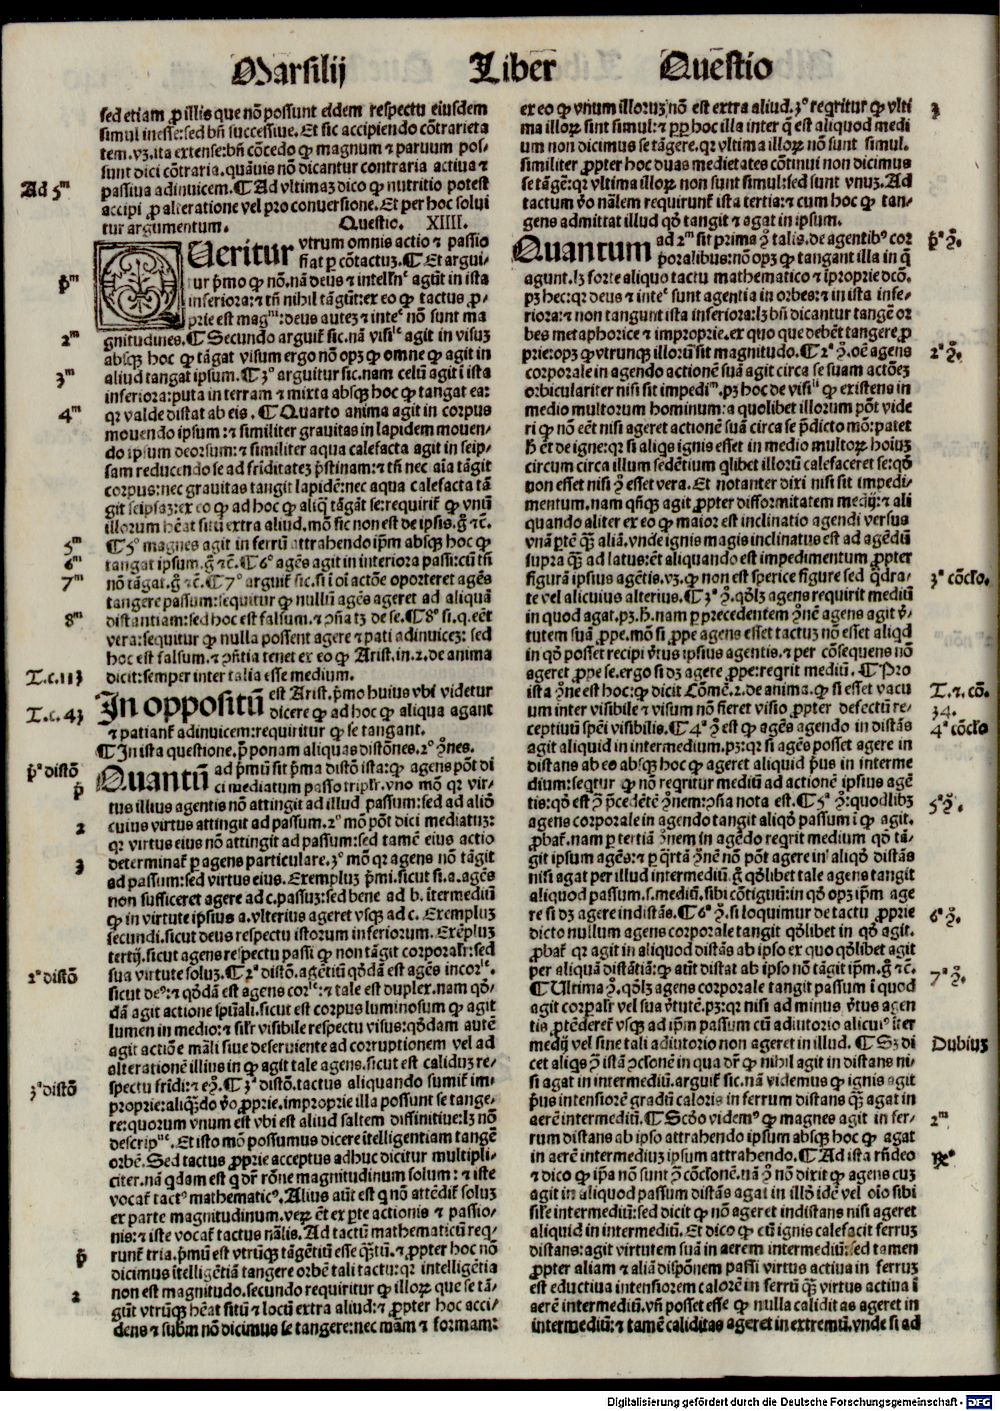 Marsilij Liber Questio
sed etiam ꝓ illis que nõ possunt eidem respectu eiusdem
simul inesse: sed bñ successiue. Et sic accipiendo cõtrarieta
tem. vꝫ. ita extense: bñ cõcedo ꝙ magnum ⁊ paruum pos-
sunt dici cõtraria. quãuis nõ dicantur contraria actiua ⁊
Ad 5ᵐ
passiua adinuicem. ¶ Ad vltimaꝫ dico ꝙ nutritio potest
accipi ꝓ alteratione vel pro conuersione. Et per hoc solui
tur argumentum. Questio. XIIII.
QUeritur vtrum omnis actio ⁊ passio
fiat ꝑ cõtactuꝫ. ¶ Et argui-
p̃ᵐ
tur p̃mo ꝙ nõ. nã deus ⁊ intellñᵉ agũt in ista
inferiora: ⁊ tñ nihil tãgũt: ex eo ꝙ tactus ꝓ-
prie est magⁿⁱ: deus auteꝫ ⁊ inteᶜ nõ sunt ma
2ᵐ
gnitudines. ¶ Secundo arguit̃ sic. nã visiˡᵉ agit in visuꝫ
absqꝫ hoc ꝙ tãgat visum ergo nõ opꝫ ꝙ omne ꝙ agit in
3ᵐ
aliud tangat ipsum. ¶ 3ᵒ arguitur sic. nam celũ agit ĩ ista
inferiora: puta in terram ⁊ mixta absqꝫ hoc ꝙ tangat ea:
4ᵐ
qꝛ valde distat ab eis. ¶ Quarto anima agit in corpus
mouendo ipsum: ⁊ similiter grauitas in lapidem mouen-
do ipsum deorsum: ⁊ similiter aqua calefacta agit in seip-
sam reducendo se ad friditateꝫ p̃stinam: ⁊ tñ nec aĩa tãgit
corpus: nec grauitas tangit lapidẽ: nec aqua calefacta tã
git seipsaꝫ: ex eo ꝙ ad hoc ꝙ aliq̃ tãgãt se: requirit̃ ꝙ vnũ
illorum hẽat sitũ extra aliud. mõ sic non est de ipsis. g̃ ⁊c̃.
5ᵐ
¶ 5ᵒ magnes agit in ferrũ attrahendo ip̃m absqꝫ hoc ꝙ
6ᵐ
tangat ipsum. g̃ ⁊c̃. ¶ 6ᵒ agẽs agit in interiora passi: cũ tñ
7ᵐ
nõ tãgat. g̃ ⁊c̃. ¶ 7ᵒ arguit̃ sic. si ĩ oĩ actõe oporteret agẽs
tangere passum: sequitur ꝙ nullũ agẽs ageret ad aliquã
8ᵐ
distantiam: sed hoc est falsum. ⁊ ↄña tꝫ de se. ¶ 8ᵒ si. q. eẽt
vera: sequitur ꝙ nulla possent agere ⁊ pati adinuiceꝫ: sed
hoc est falsum. ⁊ ↄñtia tenet ex eo ꝙ Arist. in. 2. de anima
T. c. 113
dicit: semper inter talia esse medium.
In oppositũ est Arist. p̃mo huius vbi videtur
T. c. 43
dicere ꝙ ad hoc ꝙ aliqua agant
⁊ patiant̃ adinuicem: requiritur ꝙ se tangant.
¶ In ista questione. p̃ ponam aliquas distõnes. 2ᵒ ↄ̃nes.
p̃ᵃ distõ
Quantũ ad p̃mũ sit p̃ma distõ ista: ꝙ agens põt di
p̃
ci mediatum passo tripĩr. vno mõ qꝛ vir-
tus illius agentis nõ attingit ad illud passum: sed ad aliõ
2
cuius virtus attingit ad passum. 2ᵒ mõ põt dici mediatuꝫ:
qꝛ virtus eius nõ attingit ad passum: sed tamẽ eius actio
3
determinat̃ ꝑ agens particulare. 3ᵒ mõ qꝛ agens nõ tãgit
ad passum: sed virtus eius. Exempluꝫ p̃mi. sicut si. a. agẽs
non sufficeret agere ad c. passuꝫ: sed bene ad b. ĩtermediũ
ꝙ in virtute ipsius a. vlterius ageret vsqꝫ ad c. Exempluꝫ
secundi. sicut deus respectu istorum inferiorum. Exẽpluꝫ
tertij. sicut agens respectu passi ꝙ non tãgit corporalr̃: sed
2ᵃ distõ
sua virtute soluꝫ. ¶ 2ᵃ distõ. agẽtiũ q̊dã est agẽs incorˡᵉ.
sicut deꝰ: ⁊ q̊dã est agens corˡᵉ: ⁊ tale est duplex. nam q̊-
dã agit actione spũali. sicut est corpus luminosum ꝙ agit
lumen in medio: ⁊ silr̃ visibile respectu visus: q̊dam autẽ
agit actiõe mãli siue deseruiente ad corruptionem vel ad
alterationẽ illius in ꝙ agit tale agens. sicut est caliduꝫ re-
3ᵃ distõ
spectu fridi: ⁊ eↄ̃. ¶ 3ᵃ distõ. tactus aliquando sumit̃ im-
proprie: aliqñdo v̊o ꝓprie. improprie illa possunt se tange-
re: quorum vnum est vbi est aliud saltem diffinitiue: lꝫ nõ
descripᵘᵉ. Et isto mõ possumus dicere ĩtelligentiam tangẽ
orbẽ. Sed tactus ꝓprie acceptus adhuc dicitur multipli-
citer. nã q̃dam est q̃ dr̃ rõne magnitudinum solum: ⁊ iste
vocat̃ tactꝰ mathematicꝰ. Alius aũt est q̃ nõ attẽdit̃ soluꝫ
ex parte magnitudinum. veꝝ ẽt ex ꝑte actionis ⁊ passio-
nis: ⁊ iste vocat̃ tactus nãlis. Ad tactũ mathematicũ req̃-
p̃
runt̃ tria. p̃mũ est vtrũqꝫ tãgẽtiũ esse q̃ꝫtũ. ⁊ ꝓpter hoc nõ
dicimus ĩtelligẽtiã tangere orbẽ tali tactu: qꝛ intelligẽtia
2
non est magnitudo. secundo requiritur ꝙ illoꝝ que se tã-
gũt vtrũqꝫ hẽat sitũ ⁊ locũ extra aliud: ⁊ ꝓpter hoc acci-
dens ⁊ subm̃ nõ dicimus se tangere: nec mãm ⁊ formam:
ex eo ꝙ vnum illoruꝫ nõ est extra aliud. 3ᵒ req̃ritur ꝙ vlti
3
ma illoꝝ sint simul: ⁊ ꝓp̃ hoc illa inter q̃ est aliquod medi
um non dicimus se tãgere. qꝛ vltima illoꝝ nõ sunt simul.
similiter ꝓpter hoc duas medietates cõtinui non dicimus
se tãgẽ: qꝛ vltima illoꝝ non sunt simul: sed sunt vnuꝫ. Ad
tactum v̊o nãlem requirunt̃ ista tertia: ⁊ cum hoc ꝙ tan-
gens admittat illud q̊d tangit ⁊ agat in ipsum.
p̃ᵃ ↄ̃.
Quantum ad 2ᵐ sit prima ↄ̃ talis. de agentibꝰ cor
poralibus: nõ opꝫ ꝙ tangant illa in q̃
agunt. lꝫ forte aliquo tactu mathematico ⁊ ĩproprie dcõ.
pꝫ hec: qꝛ deus ⁊ inteᶜ sunt agentia in orbes: ⁊ in ista infe-
riora: ⁊ non tangunt ista inferiora: lꝫ bñ dicantur tangẽ or
bes metaphorice ⁊ improprie. ex quo que debẽt tangere ꝓ
2ᵃ ↄ̃.
prie: opꝫ ꝙ vtrunqꝫ illorũ sit magnitudo. ¶ 2ᵃ ↄ̃. oẽ agens
corporale in agendo actionẽ suã agit circa se suam actõeꝫ
orbiculariter nisi sit impediᵐ. pꝫ hoc de visiˡⁱ ꝙ existens in
medio multorum hominum: a quolibet illorum põt vide
ri ꝙ nõ eẽt nisi ageret actionẽ suã circa se p̃dicto mõ: patet
h̃ ẽt de igne: qꝛ si aliqs ignis esset in medio multoꝝ hoĩuꝫ
circum circa illum sedẽtium q̃libet illorũ calefaceret se: q̊d
non esset nisi ↄ̃ esset vera. Et notanter dixi nisi sit impedi-
mentum. nam qñqꝫ agit ꝓpter difformitatem medij: ⁊ ali
quando aliter ex eo ꝙ maior est inclinatio agendi versus
vnãꝑtẽ q̃ꝫ aliã. vnde ignis magis inclinatus est ad agẽdũ
supra q̃ꝫ ad latus: ẽt aliquando est impedimentum ꝓpter
3ᵃ cõclo.
figurã ipsius agẽtis. vꝫ. ꝙ non est sperice figure sed q̃dra-
te vel alicuius alterius. ¶ 3ᵃ ↄ̃. q̊lꝫ agens requirit mediũ
in quod agat. pꝫ. h̃. nam ꝑ precedentem ↄ̃nẽ agens agit v̊-
tutem suã ꝓpe. mõ si ꝓpe agens esset tactuꝫ nõ esset aliq̃d
in q̊d posset recipi v̊tus ipsius agentis. ⁊ per cõsequens nõ
ageret ꝓpe se. ergo si dꝫ agere ꝓpe: req̃rit mediũ. ¶ Pro
T. ⁊. cõ.
ista ↄ̃ne est hoc: ꝙ dicit Cõmẽ. 2. de anima. ꝙ si esset vacu
34.
um inter visibile ⁊ visum nõ fieret visio ꝓpter defectũ re-
4ᵃ cõclo
ceptiuũ spẽi visibilis. ¶ 4ᵃ ↄ̃ est ꝙ agẽs agendo in distãs
agit aliquid in intermedium. pꝫ: qꝛ si agẽs posset agere in
distans ab eo absqꝫ hoc ꝙ ageret aliquid p̃us in interme
dium: seq̃tur ꝙ nõ req̃ritur mediũ ad actionẽ ipsius agẽ
5ᵃ ↄ̃.
tis: q̊d est ↄ̃ p̃cedẽtẽ ↄ̃nem: ↄña nota est. ¶ 5ᵃ ↄ̃: quodlibꝫ
agens corporale in agendo tangit aliq̊d passum ĩ ꝙ agit.
ꝓbat̃. nam ꝑ tertiã ↄ̃nem in agẽdo req̃rit medium q̊d tã-
git ipsum agẽs: ⁊ ꝑ q̃rtã ↄ̃nẽ nõ põt agere in aliq̊d distãs
nisi agat per illud intermediũ. g̃ q̊dlibet tale agens tangit
aliquod passum. s. mediũ. sibi cõtiguũ: in q̊d opꝫ ip̃m age
6ᵃ ↄ̃.
re si dꝫ agere in distãs. ¶ 6ᵃ ↄ̃. si loquimur de tactu ꝓprie
dicto nullum agens corporale tangit q̊dlibet in q̊d agit.
ꝓbat̃ qꝛ agit in aliquod distãs ab ipso ex quo q̊dlibet agit
7ᵃ ↄ̃.
per aliquã distãtiã: ꝙ aũt distat ab ipso nõ tãgit ip̃m. g̃ ⁊c̃.
¶ Ultima ↄ̃. q̊dlꝫ agens corporale tangit passum ĩ quod
agit corꝑalr̃ vel sua v̊tutẽ. pꝫ: qꝛ nisi ad minus v̊tus agen
tis ꝓtẽderet̃ vsqꝫ ad ip̃m passum cũ adiutorio alicuiꝰ ĩter
Dubiuꝫ
medij vel sine tali adiutorio non ageret in illud. ¶ Sꝫ di
cet aliqs ↄ̃ istã ↄclonẽ in qua dr̃ ꝙ nihil agit in distans ni-
si agat in intermediũ. arguit̃ sic. nã videmus ꝙ ignis agit
p̃us intensiorẽ gradũ caloris in ferrum distans q̃ꝫ agat in
2ᵐ
aerẽ intermediũ. ¶ Scõo videmꝰ ꝙ magnes agit in fer-
rum distans ab ipso attrahendo ipsum absqꝫ hoc ꝙ agat
in aerẽ intermediuꝫ ipsum attrahendo. ¶ Ad ista rñdeo
⁊ dico ꝙ ip̃a nõ sunt ↄ̃ cõclonẽ. nã ↄ̃ nõ dixit ꝙ agens cuꝫ
agit in aliquod passum distãs agat in illõ idẽ vel oĩo sibi
sil̃e intermediũ: sed dicit ꝙ nõ ageret in distans nisi ageret
aliquid in intermediũ. Et dico ꝙ cũ ignis calefacit ferruꝫ
distans: agit virtutem suã in aerem intermediũ: sed tamen
ꝓpter aliam ⁊ aliã dispõnem passi virtus actiua in ferruꝫ
est eductiua intensiorem calorẽ in ferrũ q̃ꝫ virtus actiua ĩ
aerẽ intermediũ. vñ posset esse ꝙ nulla caliditas ageret in
intermediũ: ⁊ tamẽ caliditas ageret in extremũ. vnde si ad
Digitalisierung gefördert durch die Deutsche Forschungsgemeinschaft - DFG